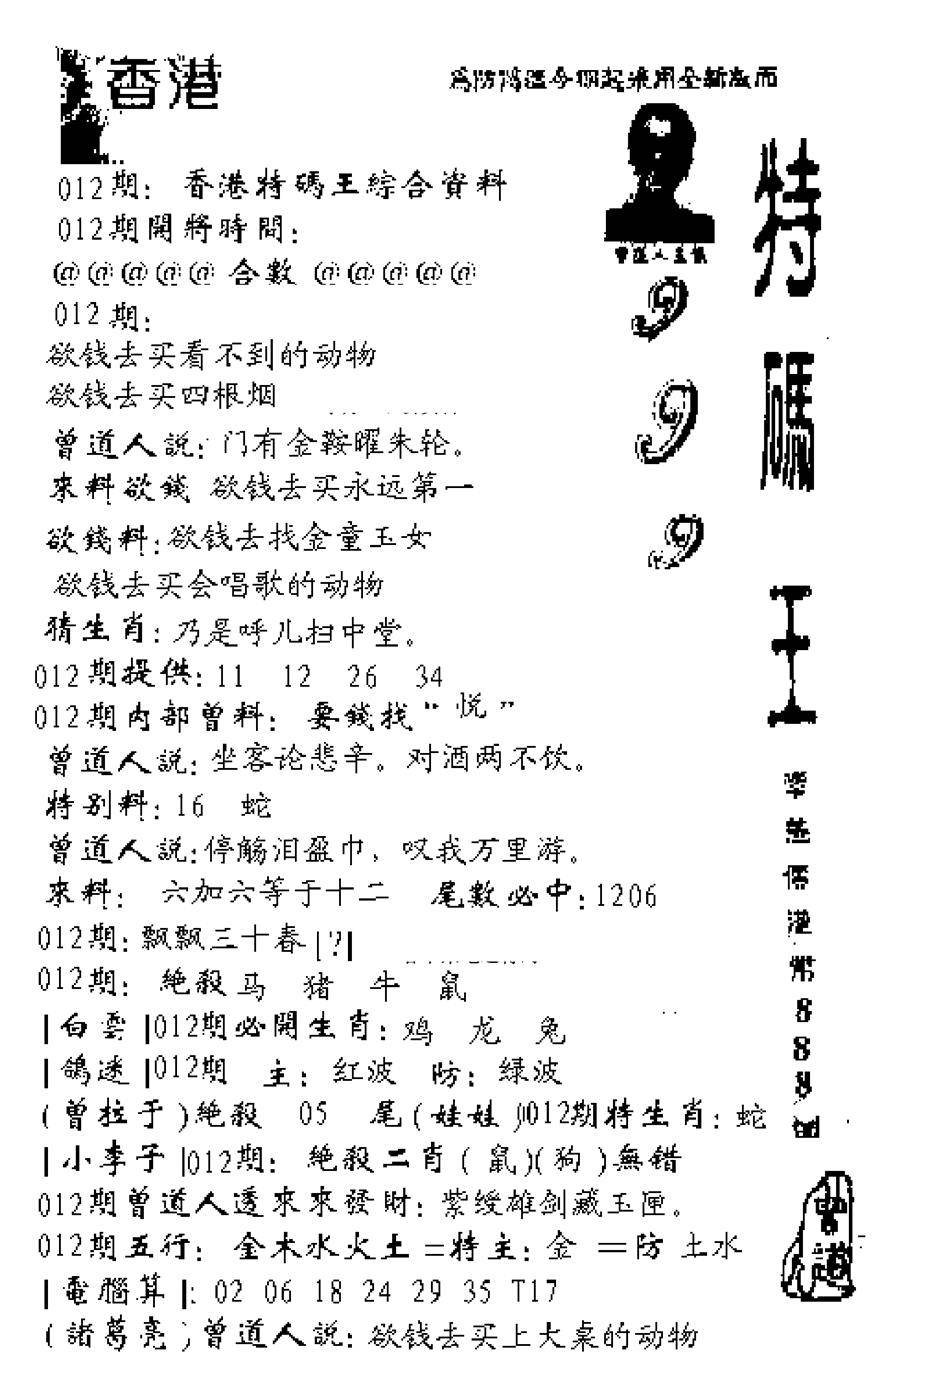 香港
為防偽造今期起采用全新版面
012期: 香港特碼王綜合資料
012期開將時間:
@@@@@ 合數 @@@@@
012期:
欲钱去买看不到的动物
欲钱去买四根烟
曾道人説: 门有金鞍曜朱轮。
來料欲錢 欲钱去买永远第一
欲錢料: 欲钱去找金童玉女
欲钱去买会唱歌的动物
猜生肖: 乃是呼儿扫中堂。
012期提供: 11 12 26 34
012期内部曾料: 要錢找“悦”
曾道人説: 坐客论悲辛。对酒两不饮。
特别料: 16 蛇
曾道人説: 停觞泪盈巾、叹我万里游。
來料: 六加六等于十二 尾數必中: 1206
012期: 飘飘三十春|?|
012期: 絶殺 马 猪 牛 鼠
|白雲|012期必開生肖: 鸡 龙 兔
|鴿迷|012期 主: 红波 防: 绿波
(曾拉于)絶殺 05 尾(娃娃)012期特生肖: 蛇
|小李子|012期: 絶殺二肖(鼠)(狗)無错
012期曾道人透來來發財: 紫绶雄剑藏玉匣。
012期五行: 金木水火土=特主: 金 =防 土水
|電腦算|: 02 06 18 24 29 35 T17
(諸葛亮)曾道人説: 欲钱去买上大桌的动物
特碼王
999
888
曾道